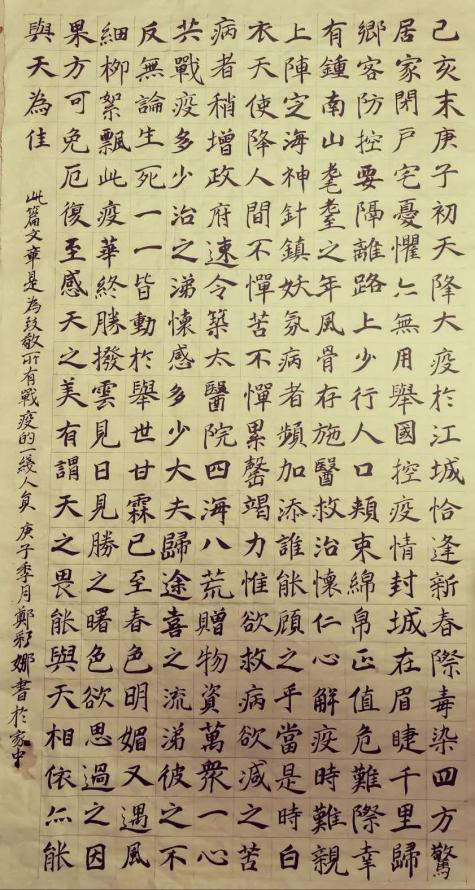 己亥末庚子初天降大疫於江城恰逢新春際毒染四方驚
居家閉戶宅憂懼亦無用舉國控疫情封城在眉睫千里歸
鄉客防控要隔離路上少行人口頰束綿帛正值危難際幸
有鍾南山耄耋之年風骨存施醫救治懷仁心解疫時難親
上陣定海神針鎮妖氛病者頻加添誰能顧之乎當是時白
衣天使降人間不憚苦不憚累罄竭力惟欲救病欲減之苦
病者稍增政府速令築太醫院四海八荒贈物資萬衆一心
共戰疫多少治之涕懷感多少大夫歸途喜之流涕彼之不
反無論生死一一皆動於舉世甘霖已至春色明媚又遇風
細柳絮飄此疫華終勝撥雲見日見勝之曙色欲思過之因
果方可免厄復至感天之美有謂天之畏能與天相依亦能
與天為佳
此篇文章是為致敬所有戰疫的一綫人員 庚子季月鄭彩娜書於家中